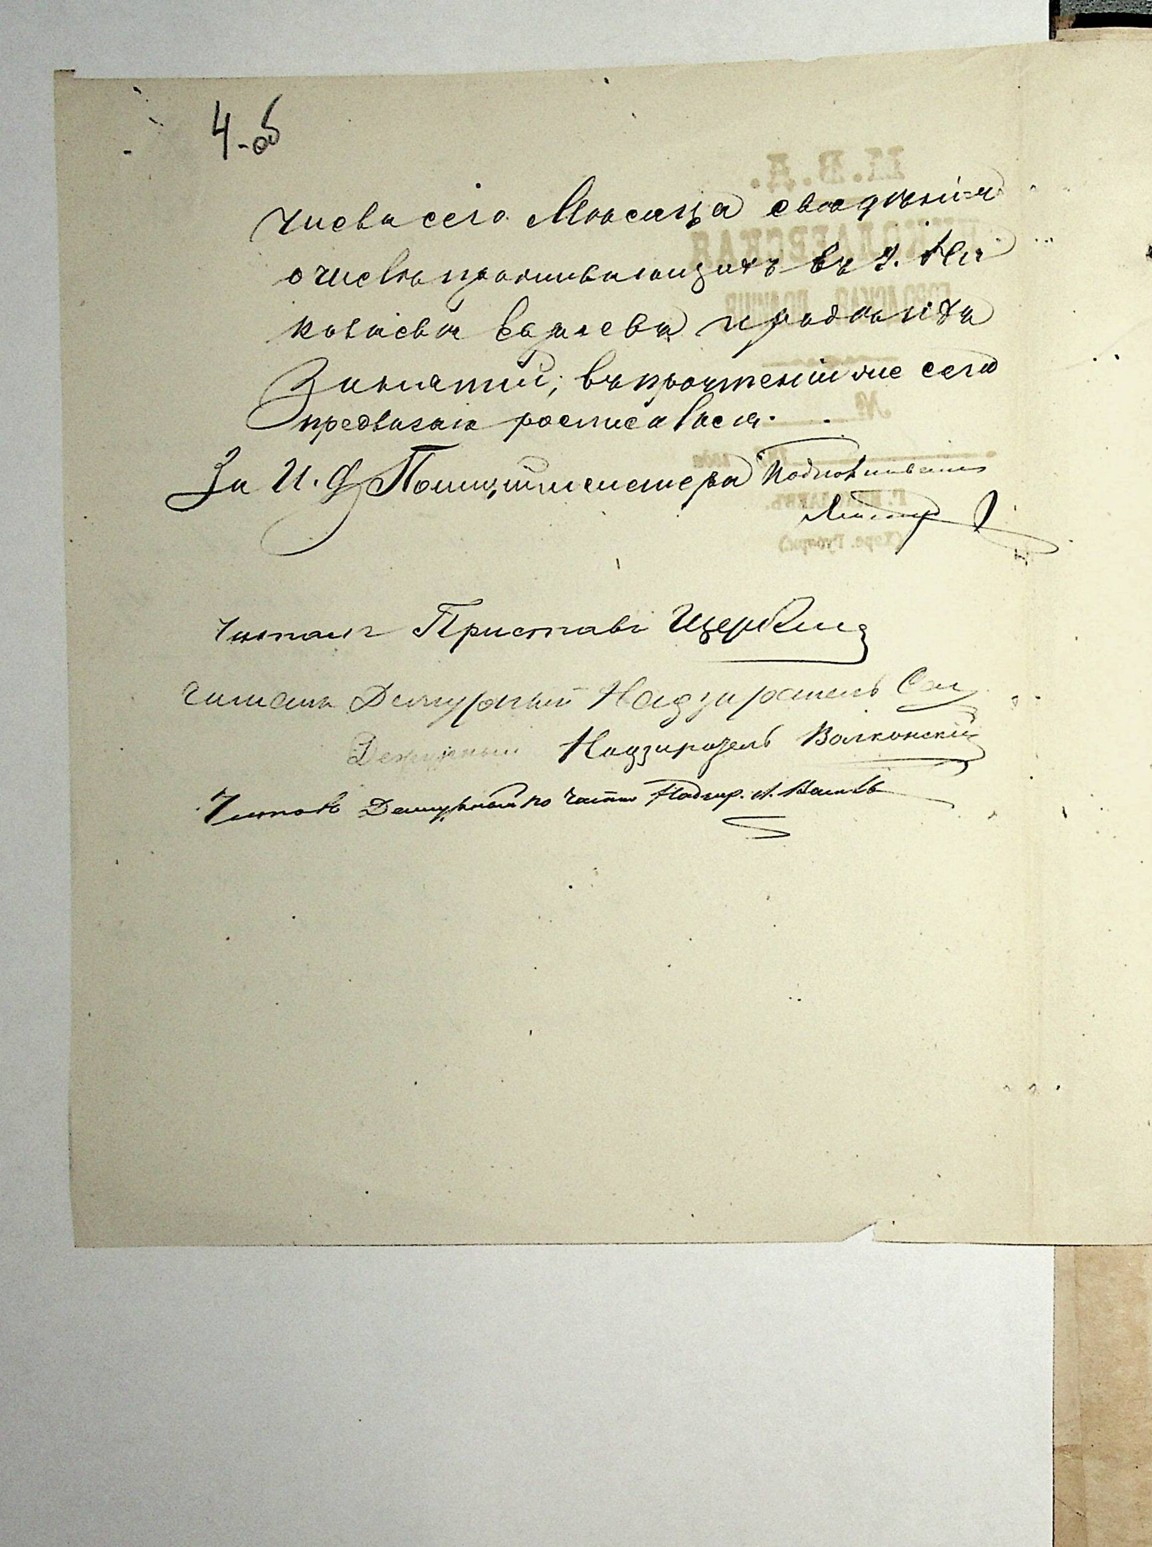 4-об
числа сего Месяца сведения
о числе проживающих в г. Ни
колаеве Евреев и рода их
Занятий, в прочтении же сего
предписания росписаться.
За И. Ф Полицииместера Подполковник
Читалъ Приставъ Щербина
Читалъ Дежурный Надзиратель
Дежурный Надзиратель Волконский
Читалъ Дежурный по части Надзир.
М.В.Д.
НИКОЛАЕВСКАЯ
ГОРОДСКАЯ ПОЛИЦІЯ
№
года
Г. НИКОЛАЕВЪ.
(Херс. Губерн.)